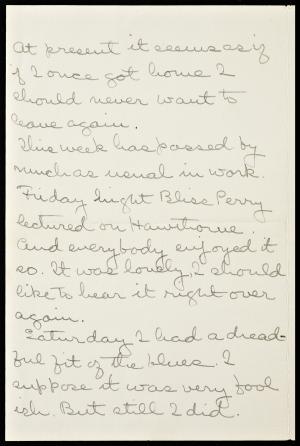 At present it seems as if
if I once got home I
should never want to
leave again.
This week has passed by
much as usual in work.
Friday night Bliss Perry
lectured on Hawthorne.
And everybody enjoyed it
so. It was lovely, I should
like to hear it right over
again.
Saturday I had a dread-
ful fit of the blues. I
suppose it was very fool
ish. But still I did.